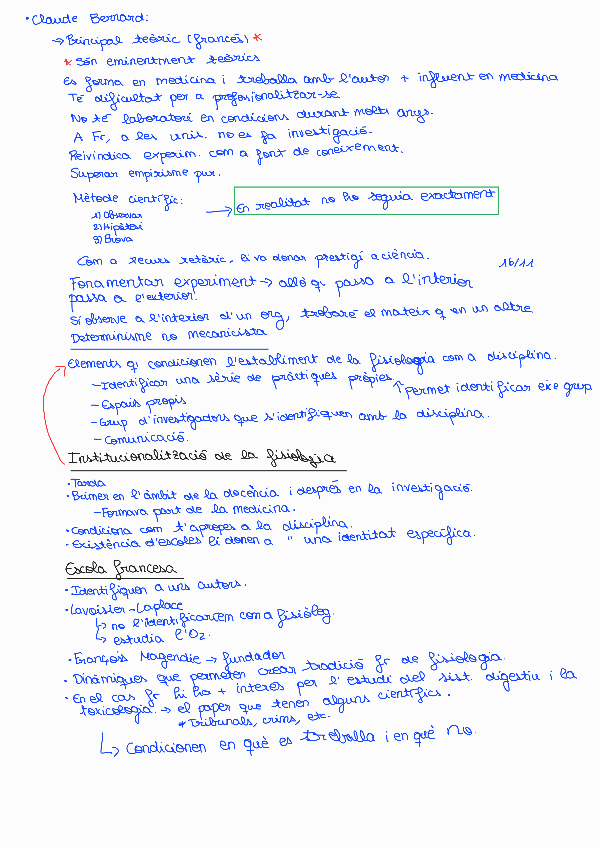 • Claude Bernard:
→ Principal teòric (francès) *
* Són eminentment teòrics
Es forma en medicina i treballa amb l'autor + influent en medicina
Té dificultat per a professionalitzar-se
No té laboratori en condicions durant molts anys.
A Fr, a les unis. no es fa investigació.
Reivindica experim. com a font de coneixement.
Superar empirisme pur.
Mètode científic: → En realitat no ho seguia exactament
1) Observar
2) Hipòtesi
3) Prova
Com a recurs retòric, li va donar prestigi a ciència.
16/11
Fonamentar experiment → allò q passa a l'interior
passa a l'exterior.
Si observe a l'interior d'un org, trobaré el mateix q en un altre
Determinisme no mecanicista
Elements q condicionen l'establiment de la fisiologia com a disciplina.
– Identificar una sèrie de pràctiques pròpies
↑ Permet identificar eixe grup
– Espais propis
– Grup d'investigadors que s'identifiquen amb la disciplina.
– Comunicació.
Institucionalització de la fisiologia
• Tarda
• Primer en l'àmbit de la docència i després en la investigació.
– Formava part de la medicina.
• Condiciona com t'apropes a la disciplina.
• Existència d'escoles li donen a " una identitat específica.
Escola francesa
• Identifiquen a uns autors.
• Lavoisier - Laplace
↳ no l'identificaríem com a fisiòleg.
↳ estudia l'O₂.
• François Magendie → fundador
• Dinàmiques que permeten crear tradició fr de fisiologia.
• En el cas fr hi ha + interès per l'estudi del sist. digestiu i la
toxicologia. → el paper que tenen alguns científics.
* Tribunals, crims, etc.
↳ Condicionen en què es treballa i en què no.